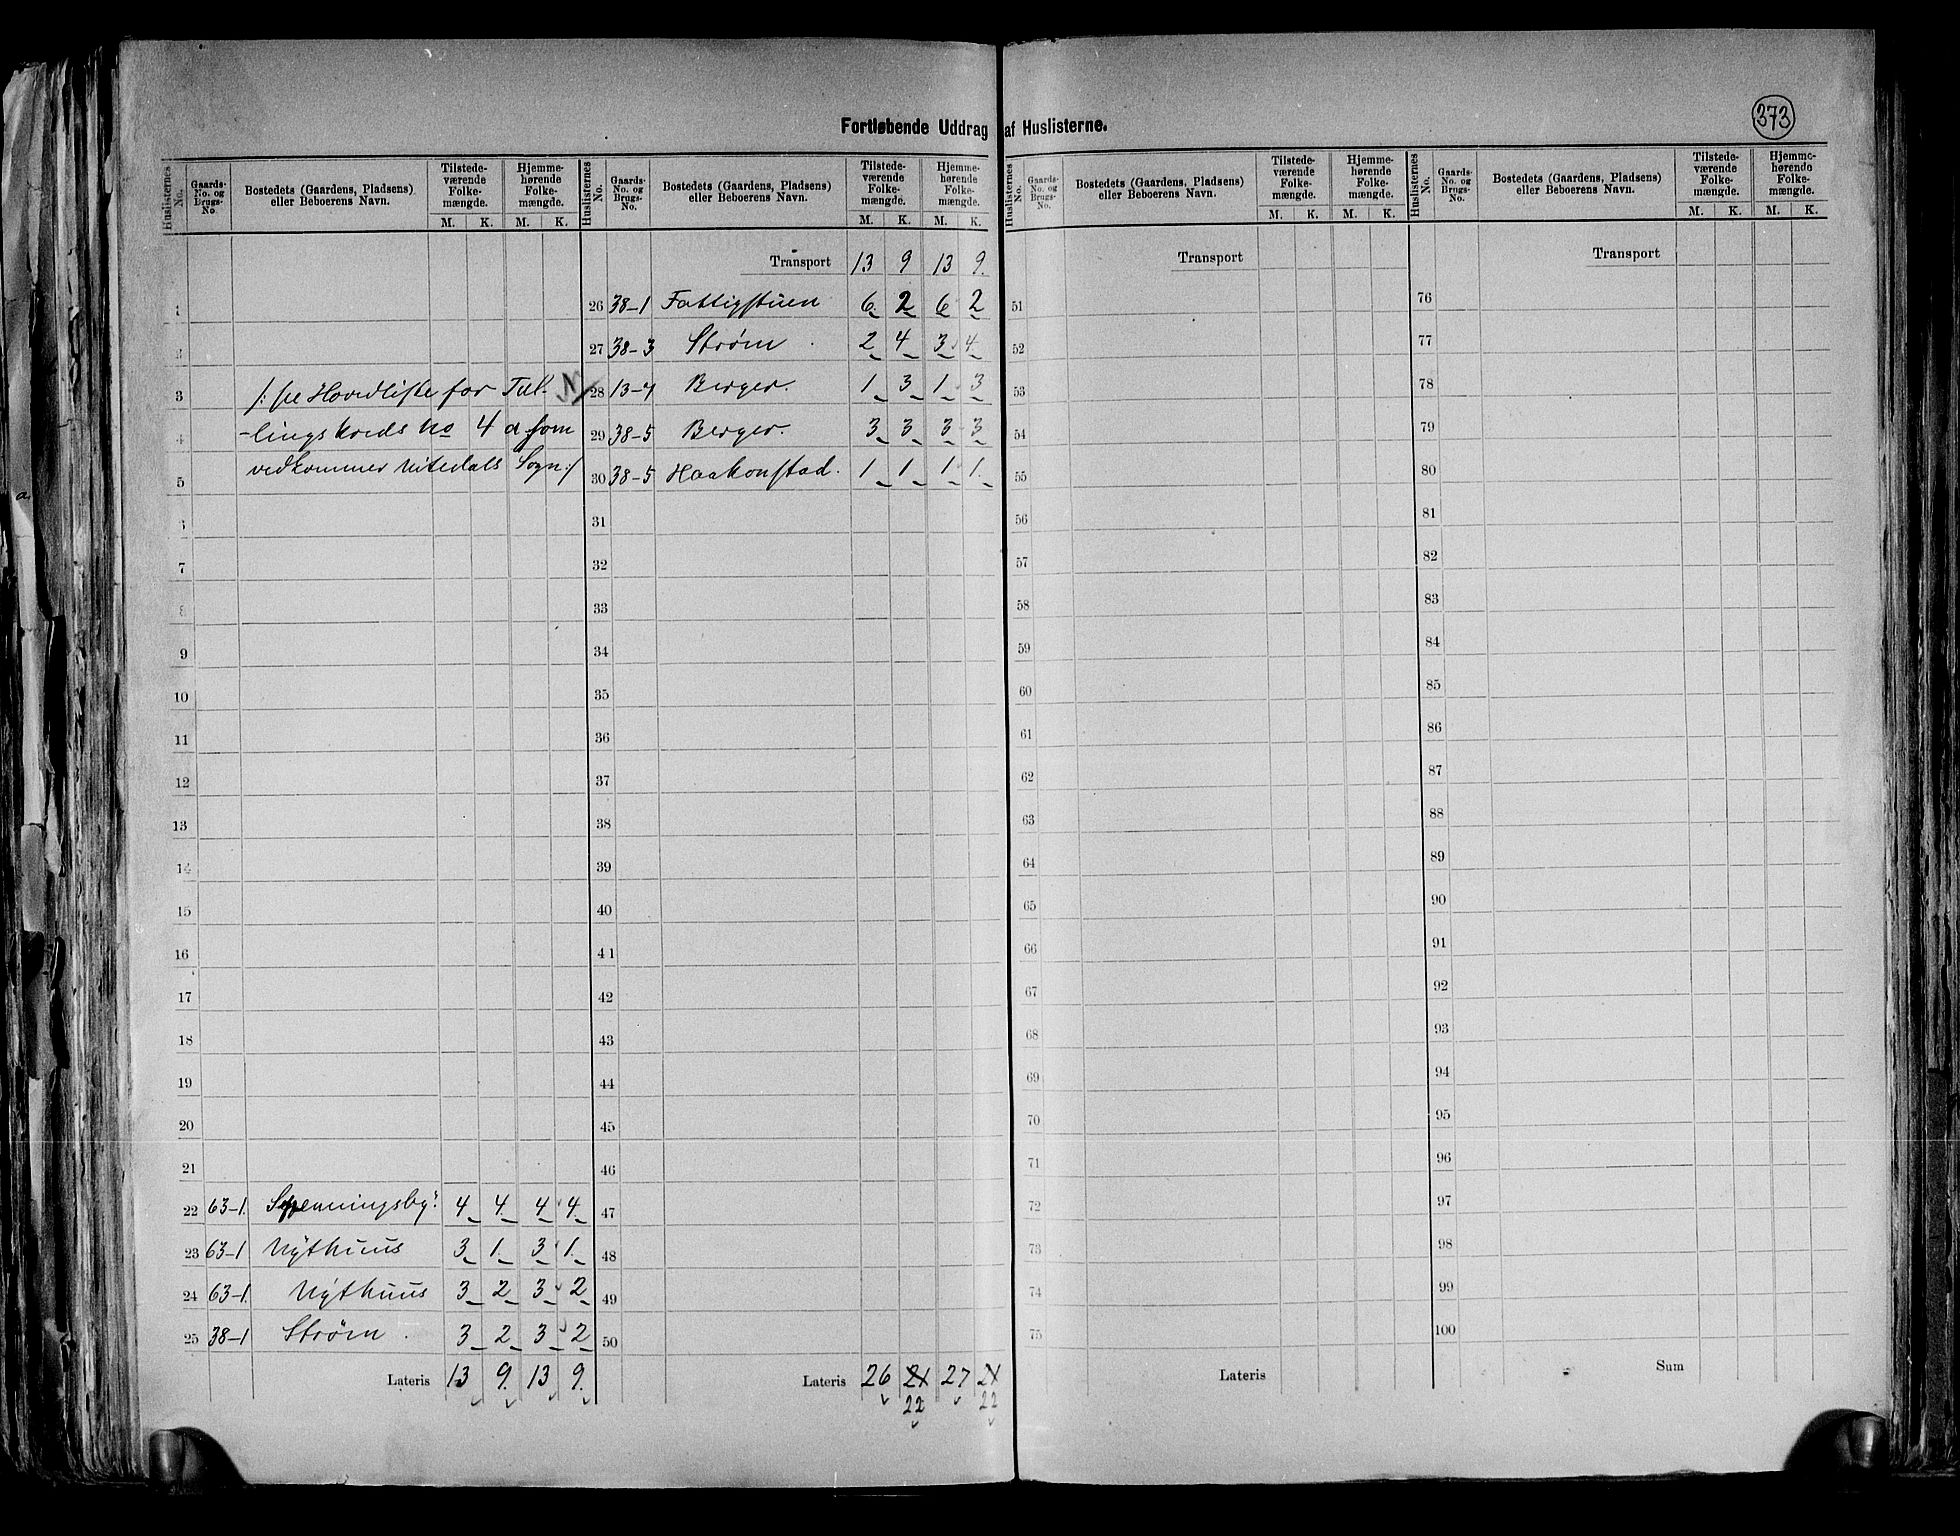 373
Fortløbende Uddrag af Huslisterne.
Huslisternes No. Gaards-No. og Brugs-No. Bostedets (Gaardens, Pladsens) eller Beboerens Navn. Tilstedeværende Folkemængde. M. K. Hjemmehørende Folkemængde. M. K.
Huslisternes No. Gaards-No. og Brugs-No. Bostedets (Gaardens, Pladsens) eller Beboerens Navn. Tilstedeværende Folkemængde. M. K. Hjemmehørende Folkemængde. M. K.
Huslisternes No. Gaards-No. og Brugs-No. Bostedets (Gaardens, Pladsens) eller Beboerens Navn. Tilstedeværende Folkemængde. M. K. Hjemmehørende Folkemængde. M. K.
Huslisternes No. Gaards-No. og Brugs-No. Bostedets (Gaardens, Pladsens) eller Beboerens Navn. Tilstedeværende Folkemængde. M. K. Hjemmehørende Folkemængde. M. K.
3 /: se Hovedliste for Tæl-
4 -lingskreds no 4 a som
5 vedkommer Nitedals Sogn :/
7
8
9
10
11
12
13
14
15
16
17
18
19
20
21
22 63-1. Spenningsby. 4 4. 4 4.
23 63-1 Nythuus 3 1. 3 1.
24 63-1. Nythuus 3 2 3 2
25 38-1 Strøm . 3 2 3 2
Lateris 13 9. 13 9.
Transport 13 9 13 9.
26 38-1 Fattigstuen 6 2 6 2
27 38-3 Strøm . 2 4 3 4
28 13-7 Berger. 1 3 1 3
29 38-5 Berger. 3 3 3 3
30 38-5 Haakonstad. 1 1 1 1.
31
32
33
34
35
36
37
38
39
40
41
42
43
44
45
46
47
48
49
50
Lateris 26 21 27 21
22 22
Transport
51
52
53
54
55
56
57
58
59
60
61
62
63
64
65
66
67
68
69
70
71
72
73
74
75
Lateris
Transport
76
77
78
79
80
81
82
83
84
85
86
87
88
89
90
91
92
93
94
95
96
97
98
99
100
Sum